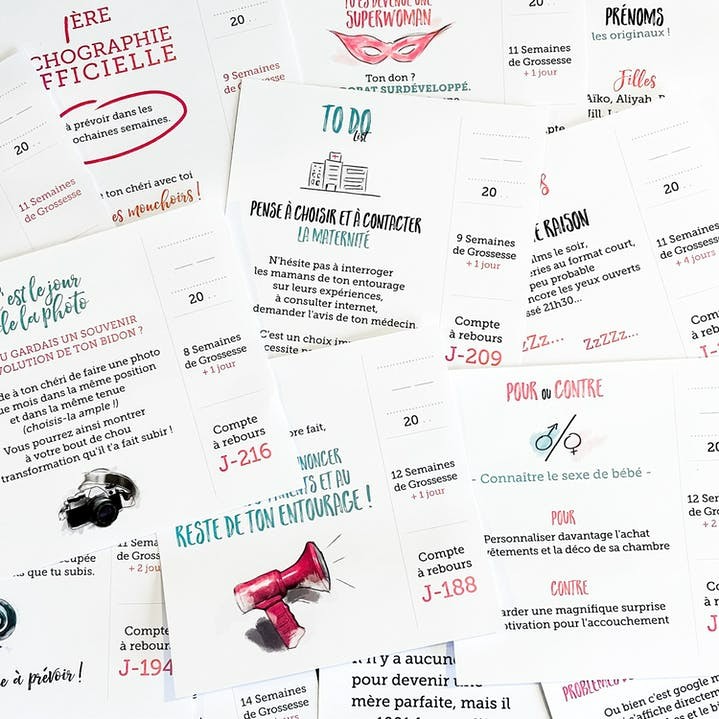 1ÈRE
OFFICIELLE
à prévoir dans les
prochaines semaines.
ton chéri avec toi
mouchoirs !
20 . .
9 Semaines
de Grossesse
20 . .
11 Semaines
de Grossesse
TU ES DEVENUE UNE
SUPERWOMAN
Ton don ?
SURDÉVELOPPÉ.
20 . .
11 Semaines
de Grossesse
+ 1 jour
PRÉNOMS
les originaux !
Filles
Aïko, Aliyah,
TO DO
list
PENSE À CHOISIR ET À CONTACTER
LA MATERNITÉ
N'hésite pas à interroger
les mamans de ton entourage
sur leurs expériences,
à consulter internet,
demander l'avis de ton médecin.
C'est un choix
20 . .
9 Semaines
de Grossesse
+ 1 jour
Compte
à rebours
J-209
RAISON
le soir,
au format court,
peu probable
encore les yeux ouverts
21h30...
ZzZz...
ZzZZz...
11 Semaines
de Grossesse
+ 4 jours
Compte
à rebours
est le jour
de la photo
GARDAIS UN SOUVENIR
ÉVOLUTION DE TON BIDON ?
à ton chéri de faire une photo
que mois dans la même position
et dans la même tenue
(choisis-la ample !)
Vous pourrez ainsi montrer
à votre bout de chou
transformation qu'il t'a fait subir !
20 . .
8 Semaines
de Grossesse
+ 1 jour
Compte
à rebours
J-216
fait,
ET AU
RESTE DE TON ENTOURAGE !
20 . .
12 Semaines
de Grossesse
+ 1 jour
Compte
à rebours
J-188
POUR OU CONTRE
- Connaître le sexe de bébé -
POUR
Personnaliser davantage l'achat
vêtements et la déco de sa chambre
CONTRE
Garder une magnifique surprise
motivation pour l'accouchement
20
Compte
à rebours
J-1
que tu subis.
à prévoir !
+ 2
Compte
à rebours
J-194
14 Semaines
de Grossesse
Il n'y a aucune
pour devenir une
mère parfaite, mais il
Ou bien c'est google
s'affiche